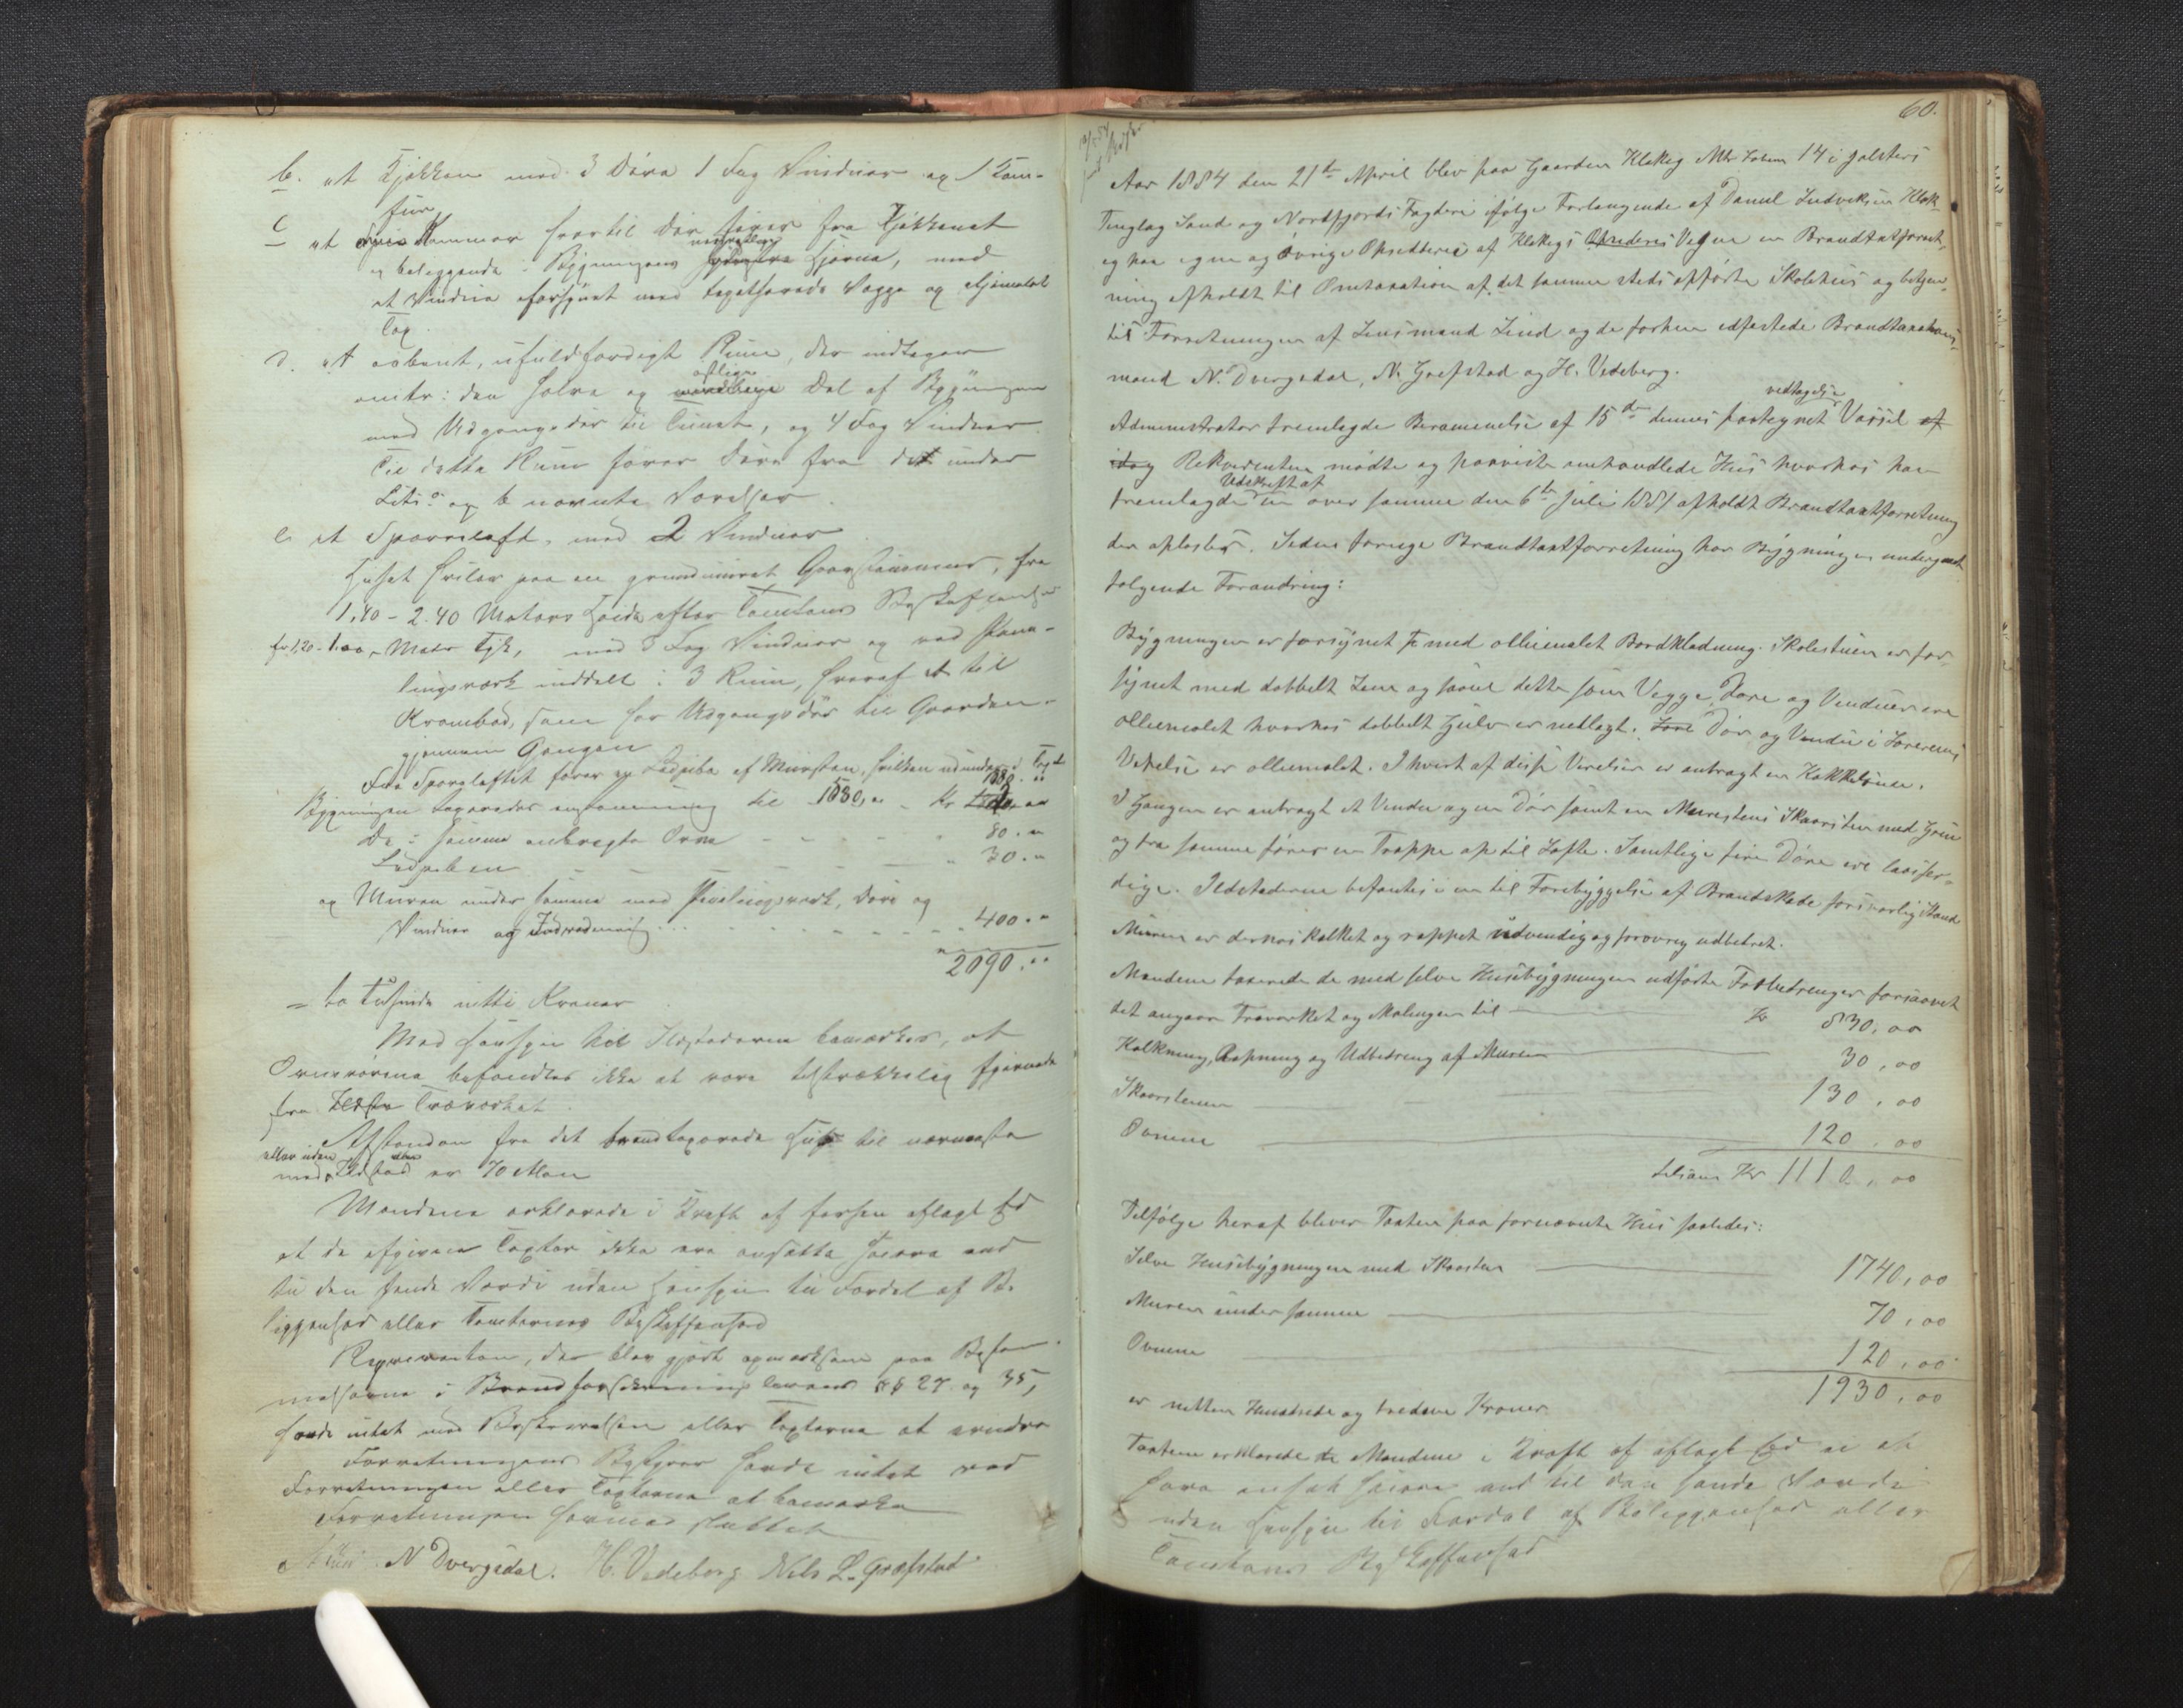 b. et Kjøkken med 3 Døre 1 Fag Vinduer og 1 Kom-
fur
c et Kammer hvortil Dør fører fra Kjøkkenet
og beliggende i Bygningens Hjørne, med
et Vindue forsynet med tapetserede Vægge og
Tag.
d. et aabent, ufuldfærdigt Rum, der indtager
omtr: den halve og østlige Del af Bygningen
med Udgangsdør til Tunet, og 4 Fag Vinduer
Til dette Rum fører Døre fra det under
Litr a og b nævnte Værelser
e et Sparreloft, med 2 Vinduer
Huset hviler paa en grundmuret, fra
1,40 - 2.40 Meters Høide efter Tomtens Beskaffenhed
fr 1,20 - 1.00, Meter Tyk, med 3 Fag Vinduer og ved Pane-
lingsværk inddelt i 3 Rum, hvoraf et til
Krambod, som har Udgangsdør til Gaarden
gjennem Gangen
Fra Spareloftet fører en Ludpibe af Mursten, hvilken udmunder i Taget
Bygningen taxeredes til 1580,00 Kr
De i samme anbragte Ovne - - - 80.00
Ludpiben - - - 30.00
og Muren under samme med Panelingsværk, Døre og
Vinduer og Indredning ... 400.00
2090.00
= to Tusinde nitti Kroner
Med Hensyn til Ildstederne bemærkes, at
Ovnsrørene befandtes ikke at være tilstrækkelig fjernede
fra Træværket
Afstanden fra det brandtaxerede Hus til nærmeste
eller uden
med Ildsted er 70 Alen
Mændene erklærede i Kraft af forhen aflagt Ed
at de afgivne Taxter ikke ere ansatte høiere end
til den sande Værdi uden Hensyn til Fordel af Be-
liggenhed eller Tomternes Beskaffenhed
Reqvirenten, der blev gjort opmærksom paa Bestem-
melserne i Brandforsikrings Lovens §§ 27 og 35,
havde intet med Beskrivelsen eller Taxterne at erindre
Forretningens Bestyrer havde intet ved
Forretningen eller Taxterne at bemærke
Forretningen hermed sluttet
N Dvergsdal. H. Vedeberg Nils L. Græfstad
60.
Aar 1884 den 21de April blev paa Gaarden Klakeg Mtr Løbno 14 i Jølsters
Tinglag Sønd og Nordfjords Fogderi ifølge Forlangende af Daniel Ludviksen Klak-
eg paa egne og øvrige Opsiddere af Klakegs Vegne en Brandtaxtforret-
ning afholdt til Omtaxation af det samme steds opførte Skolehus og betjen-
tes Forretningen af Lensmand Lind og de forhen edfæstede Brandtaxations-
mænd N. Dvergsdal, N. Græfstad og H. Vedeberg.
vedtagelse
Administrator fremlagde Berammelse af 15de dennes paategnet Varsel af
idag Rekvirenten mødte og paaviste omhandlede Hus hvorhos han
Udskrift af
fremlagde en over samme den 6te Juli 1881 afholdt Brandtaxtforretning
der oplæstes. Siden forrige Brandtaxtforretning har Bygningen undergaaet
følgende Forandring:
Bygningen er forsynet med oliemalet Bordklædning. Skolestuen er for-
synet med dobbelt Lem og saavel dette som Vægge, Døre og Vinduer ere
oliemalet hvorhos dobbelt Gulv er nedlagt. Dør og Vindue i Lærerens
Værelse er oliemalet. I hvert af disse Værelser er anbragt en Kakkelovn.
I Gangen er anbragt et Vindue og en Dør samt en Murestens Skorsten med Grue
og fra samme fører en Trappe op til Lofte. Samtlige fire Døre ere laasfær-
dige. Ildstederne befantes i en til Forebyggelse af Brandskade forsvarlig Stand
Muren er derhos kalket og rappet udvendig og forøvrig udbedret.
Mændene taxerede de med selve Husebygningen udførte Forbedringer forsaavidt
det angaar Træværket og Malingen til — Kr 830,00
Kalkning, Rapning og Udbedring af Muren — 30,00
Skorstenen — 130,00
Ovnene — 120,00
tilsam. Kr 1110,00
Tilfølge heraf bliver Taxten paa fornævnte Hus saaledes:
Selve Husebygningen med Skorsten — 1740,00
Muren under samme — 70,00
Ovnene — 120,00
1930,00
er nitten Hundrede og tredive Kroner.
Taxterne erklærede Mændene i Kraft af aflagt Ed ei at
være ansat høiere end til den sande Værdi
uden Hensyn til Fordel af Beliggenhed eller
Tomtens Beskaffenhed